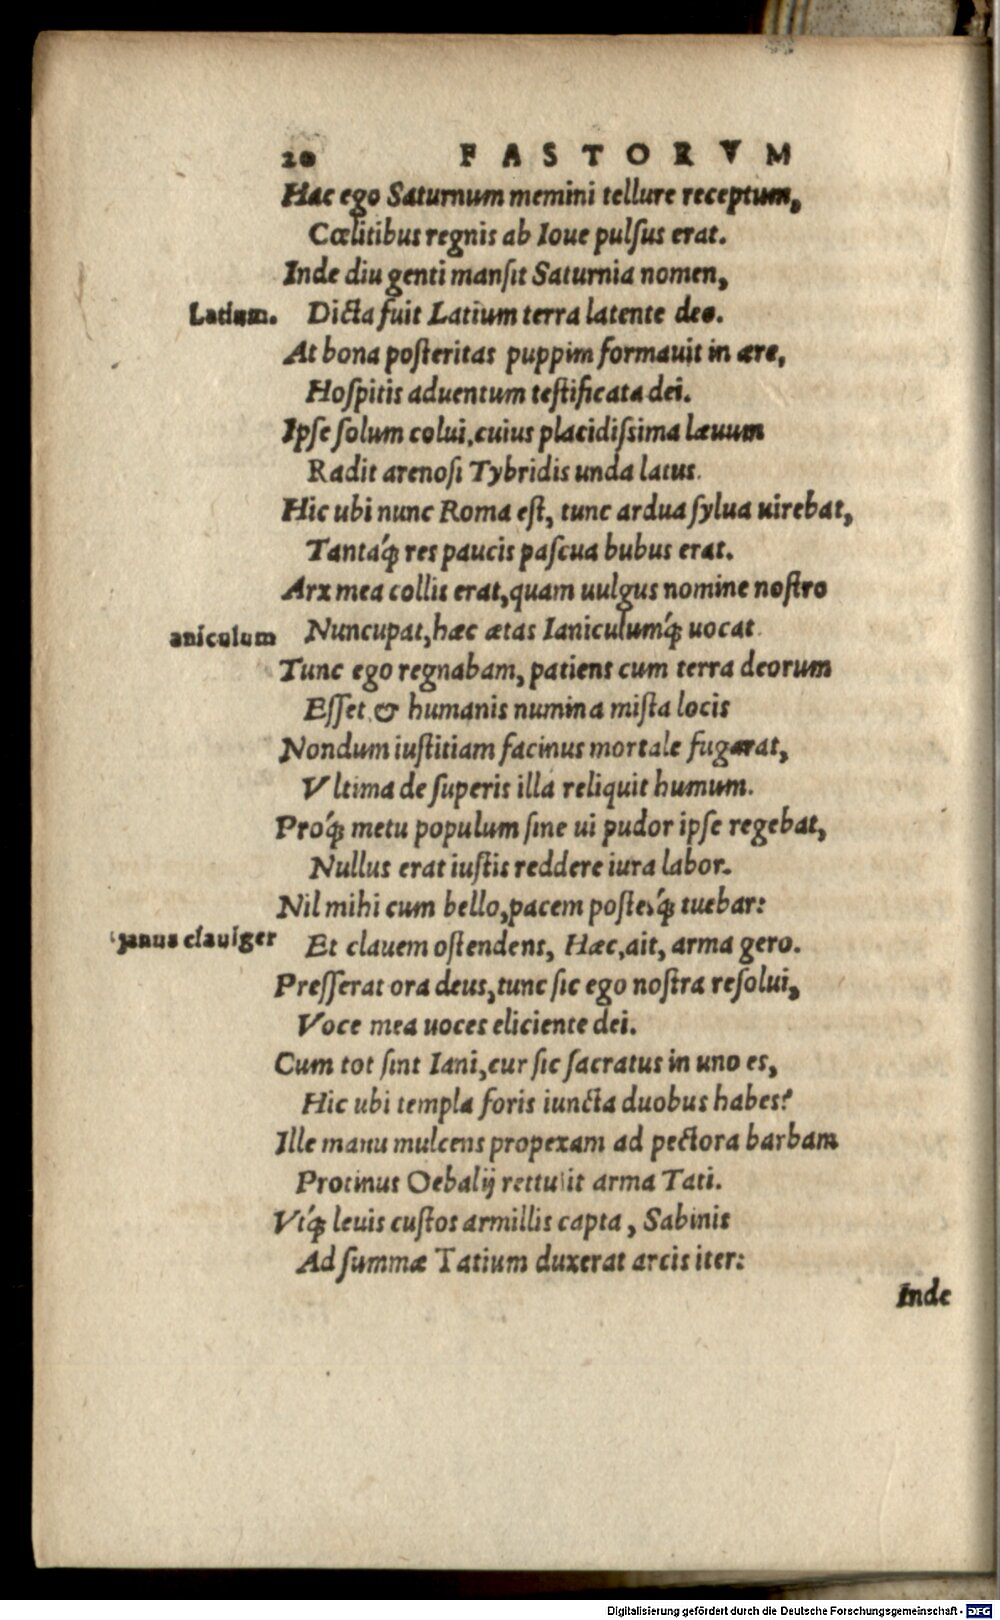 20 FASTORVM
Hac ego Saturnum memini tellure receptum,
Cœlitibus regnis ab Ioue pulſus erat.
Inde diu genti manſit Saturnia nomen,
Latium. Dicta fuit Latium terra latente deo.
At bona poſteritas puppim formauit in ære,
Hoſpitis aduentum teſtificata dei.
Ipſe ſolum colui, cuius placidiſsima læuum
Radit arenoſi Tybridis unda latus.
Hic ubi nunc Roma eſt, tunc ardua ſylua uirebat,
Tantaq́ꝫ res paucis paſcua bubus erat.
Arx mea collis erat, quam uulgus nomine noſtro
aniculum Nuncupat, hæc ætas Ianiculumq́ꝫ uocat.
Tunc ego regnabam, patiens cum terra deorum
Eſſet, & humanis numina miſta locis
Nondum iuſtitiam facinus mortale fugarat,
Vltima de ſuperis illa reliquit humum.
Proq́ꝫ metu populum ſine ui pudor ipſe regebat,
Nullus erat iuſtis reddere iura labor.
Nil mihi cum bello, pacem poſteſq́ꝫ tuebar:
Janus clauiger Et clauem oſtendens, Hæc, ait, arma gero.
Preſſerat ora deus, tunc ſic ego noſtra reſolui,
Voce mea uoces eliciente dei.
Cum tot ſint Iani, cur ſic ſacratus in uno es,
Hic ubi templa foris iuncta duobus habes?
Ille manu mulcens propexam ad pectora barbam
Protinus Oebalij rettulit arma Tati.
Vtq́ꝫ leuis cuſtos armillis capta, Sabinis
Ad ſummæ Tatium duxerat arcis iter:
Inde
Digitalisierung gefördert durch die Deutsche Forschungsgemeinschaft - DFG